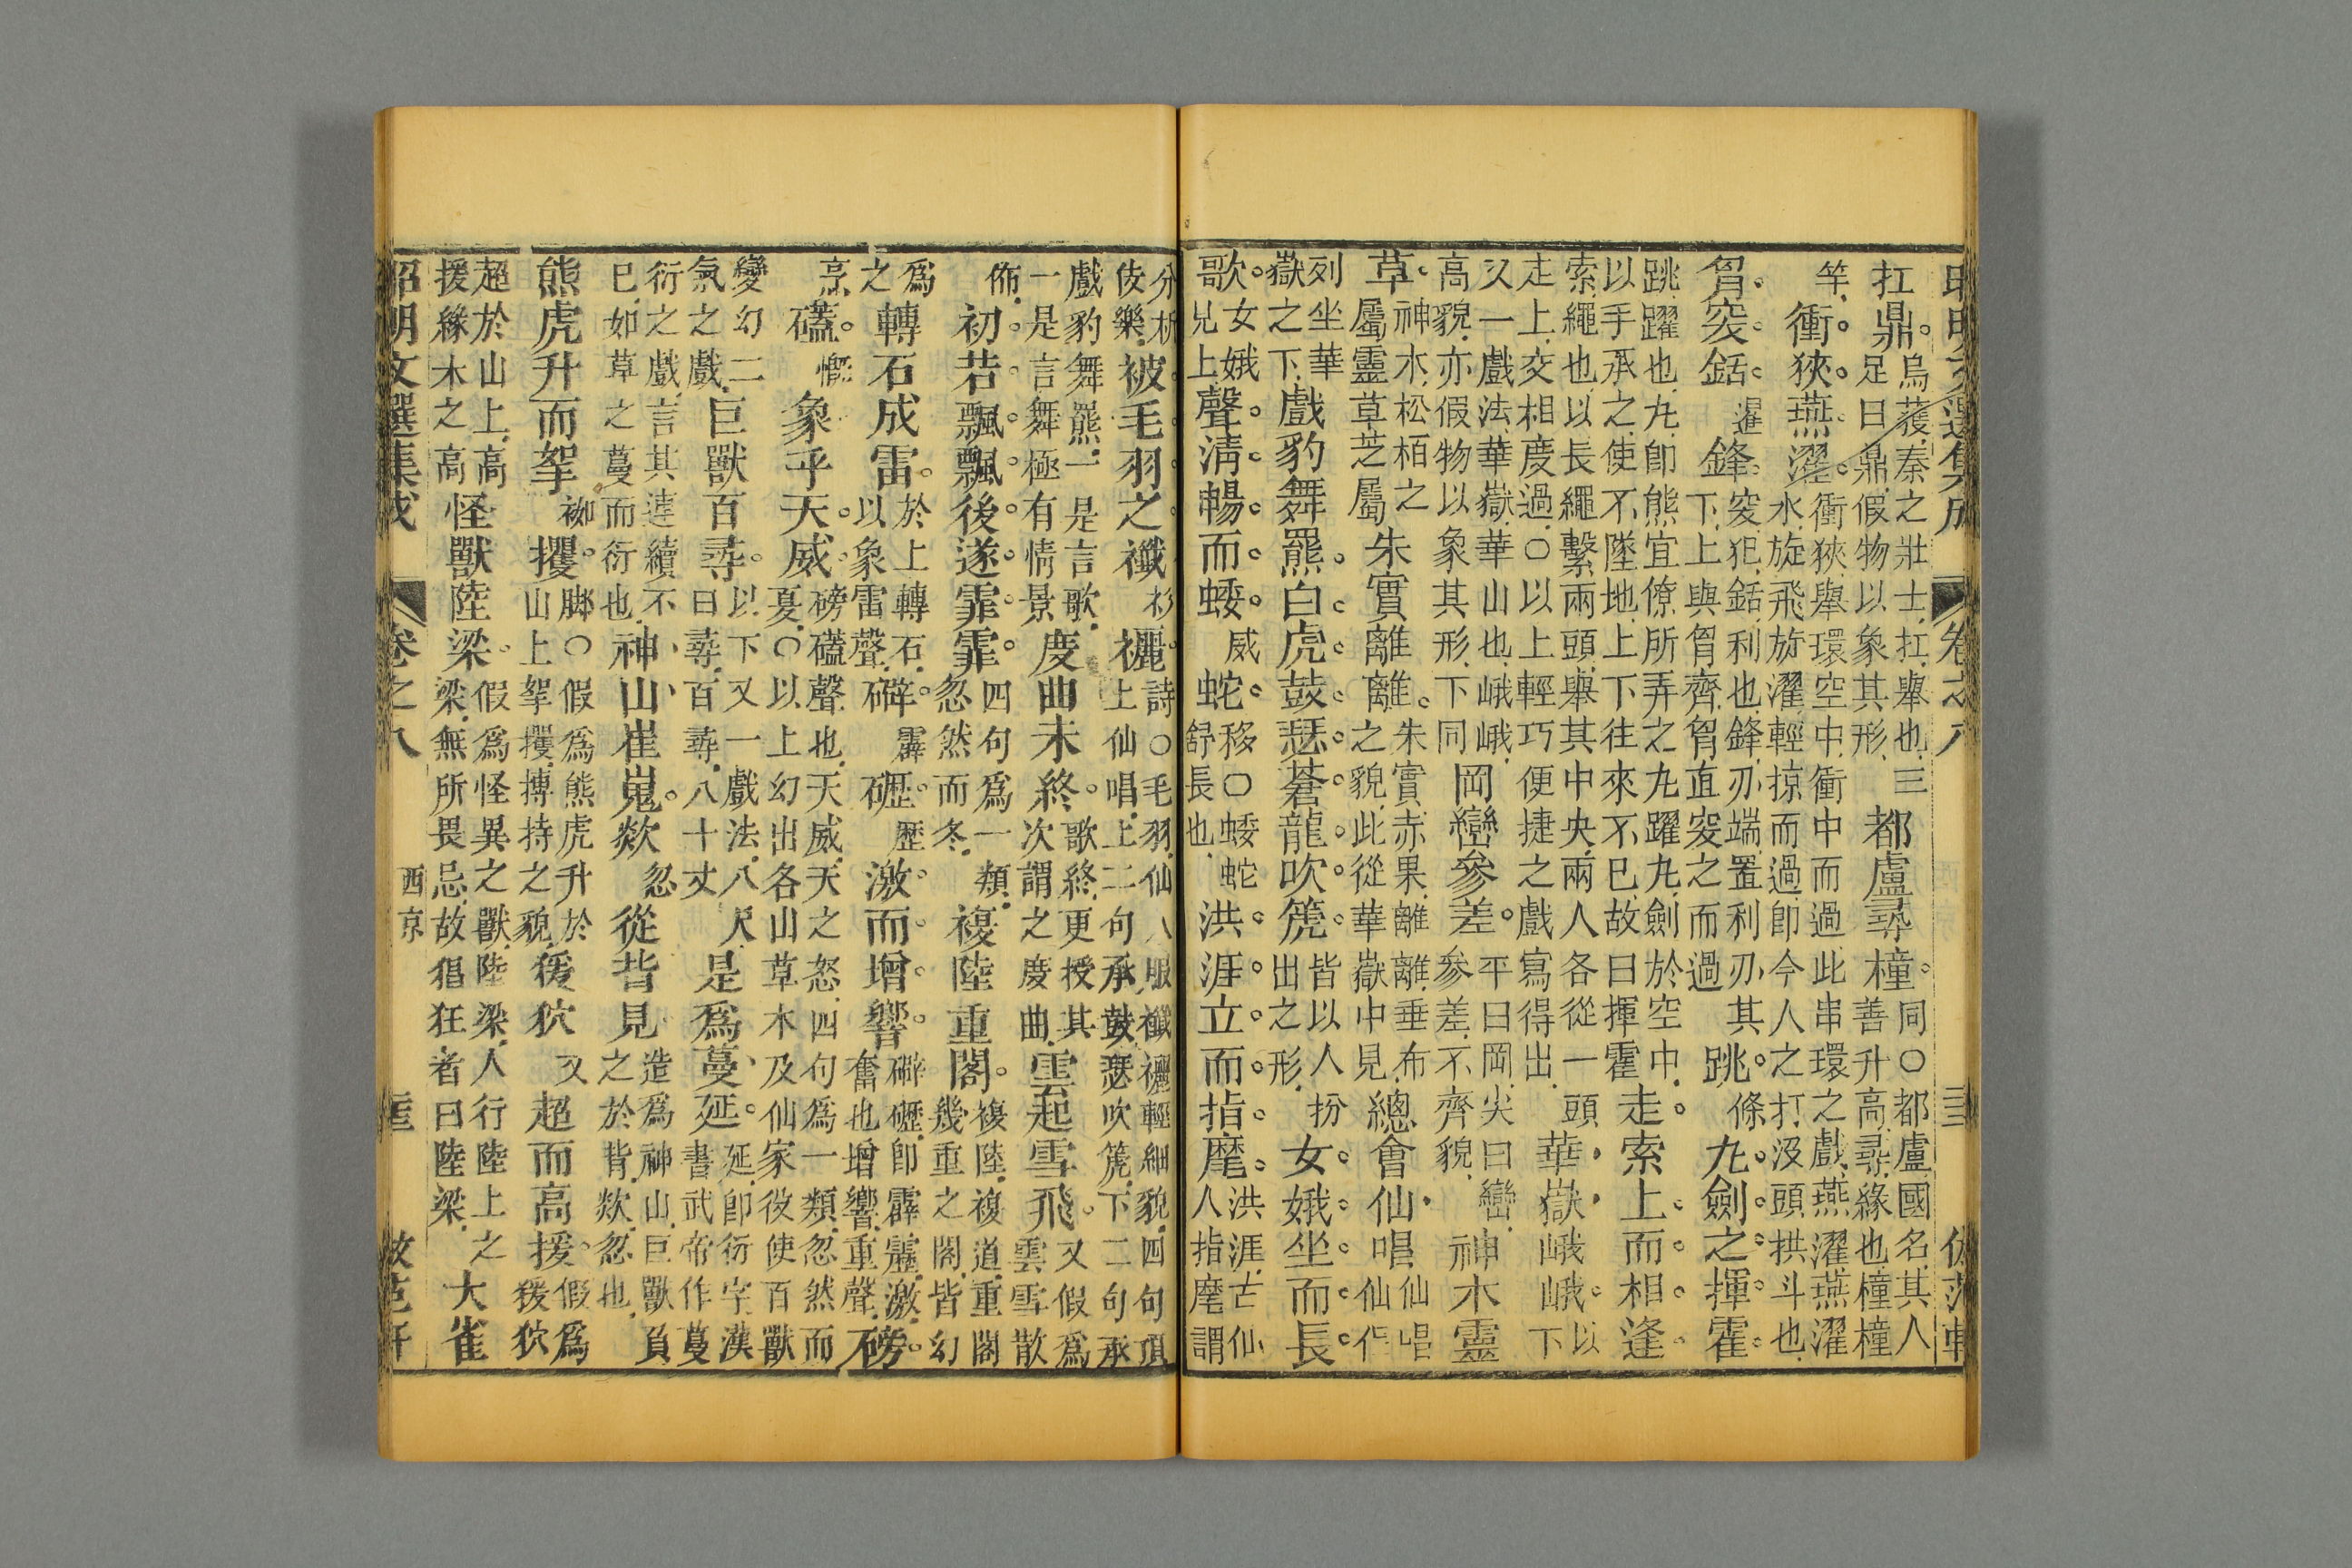 昭明文選集成　卷之八　三三　仿范軒
扛鼎。烏獲，秦之壯士，扛，舉也，三足曰鼎，假物以象其形都盧尋橦。同〇都盧國名，其人善升高，尋，緣也，橦，橦
竿，衝。狹。燕。濯。衝狹，舉環空中，衝中而過，此串環之戲，燕濯，燕濯水，旋飛旋濯，輕掠而過，即今人之打汲頭拱斗也，
胷。突。銛。暹鋒。突犯，銛利也，鋒，刃端，置利刃其下，上與胷齊，胷直突之而過跳。條丸。劍。之。揮。霍。
跳躍也，丸，卽熊宜僚所弄之丸，躍丸劍於空中，以手承之，使不墜地，上下往來不已，故曰揮霍走。索。上。而。相。逢。
索，繩也，以長繩繫兩頭，舉其中央，兩人各從一頭走上，交相度過，〇以上輕巧便捷之戲寫得出，華嶽峨峨。以下
又一戲法，華嶽，華山也，峨峨，高貌，亦假物以象其形，下同岡巒參差。平曰岡，尖曰巒，參差，不齊貌，神木靈
草。神木，松栢之屬，靈草芝屬朱實離離。朱實，赤果，離離，垂布之貌，此從華嶽中見總會仙唱仙唱仙作
列坐華嶽之下，戲豹舞羆。白。虎。鼓。瑟。蒼。龍。吹。篪。皆以人扮出之形，女。娥。坐。而。長。
歌。女娥兒上聲。淸。暢。而。蜲。威蛇。移〇蜲蛇舒長也，洪。涯。立。而。指。麾。洪涯，古仙人指麾謂
分析伎樂，被毛羽之襳衫襹。詩〇毛羽，仙人服，襳襹輕細貌，四句頂上仙唱，上二句承鼓瑟吹篪，下二句承
戲豹舞羆，一是言歌，一是言舞，極有情景度曲未終。歌終，更授其次謂之度曲，雲起雪飛。又假爲雲雪散
佈，初。若。飄。飄。後。遂。霏。霏。四句爲一類忽然而冬，複陸重閣。複陸，複道，重閣幾重之閣，皆幻
爲之轉石成雷。於上轉石，以象雷聲，礔辟。霹礰。歷激。而。增。響。礔礰，卽霹靂，激，奮也，增響，重聲，磅。
烹，礚。慨象乎天。威。磅礚聲也，天威，天之怒，四句爲一類，忽然而夏，〇以上幻出各山草木及仙家役使百獸
變幻二氣之戲，巨獸百尋。以下又一戲法，八尺曰尋，百尋，八十丈是爲蔓延。延，卽衍字，漢書武帝作蔓
衍之戲，言其連續不已，如草之蔓而衍也，神山崔嵬。歘忽從背見造爲神山，巨獸負之於背，歘，忽也，
熊虎升而挐袽攫。脚〇假爲熊虎升於山上挐攫，搏持之貌，猨狖又超而高援。假爲猨狖
超於山上，高援緣木之高怪獸陸梁。假爲怪異之獸，陸梁，人行陸上之梁，無所畏忌，故猖狂者曰陸梁，大雀
昭明文選集成　卷之八　西京　仿范軒